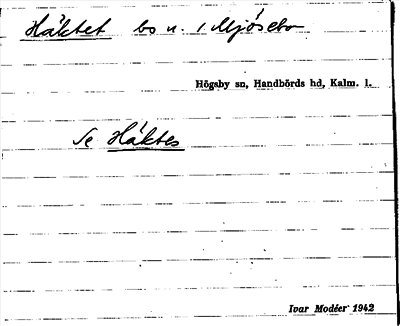 Häktet bo n. i Mjösebo
Högsby sn, Handbörds hd, Kalm. l.
Se Häktes
Ivar Modéer 1942